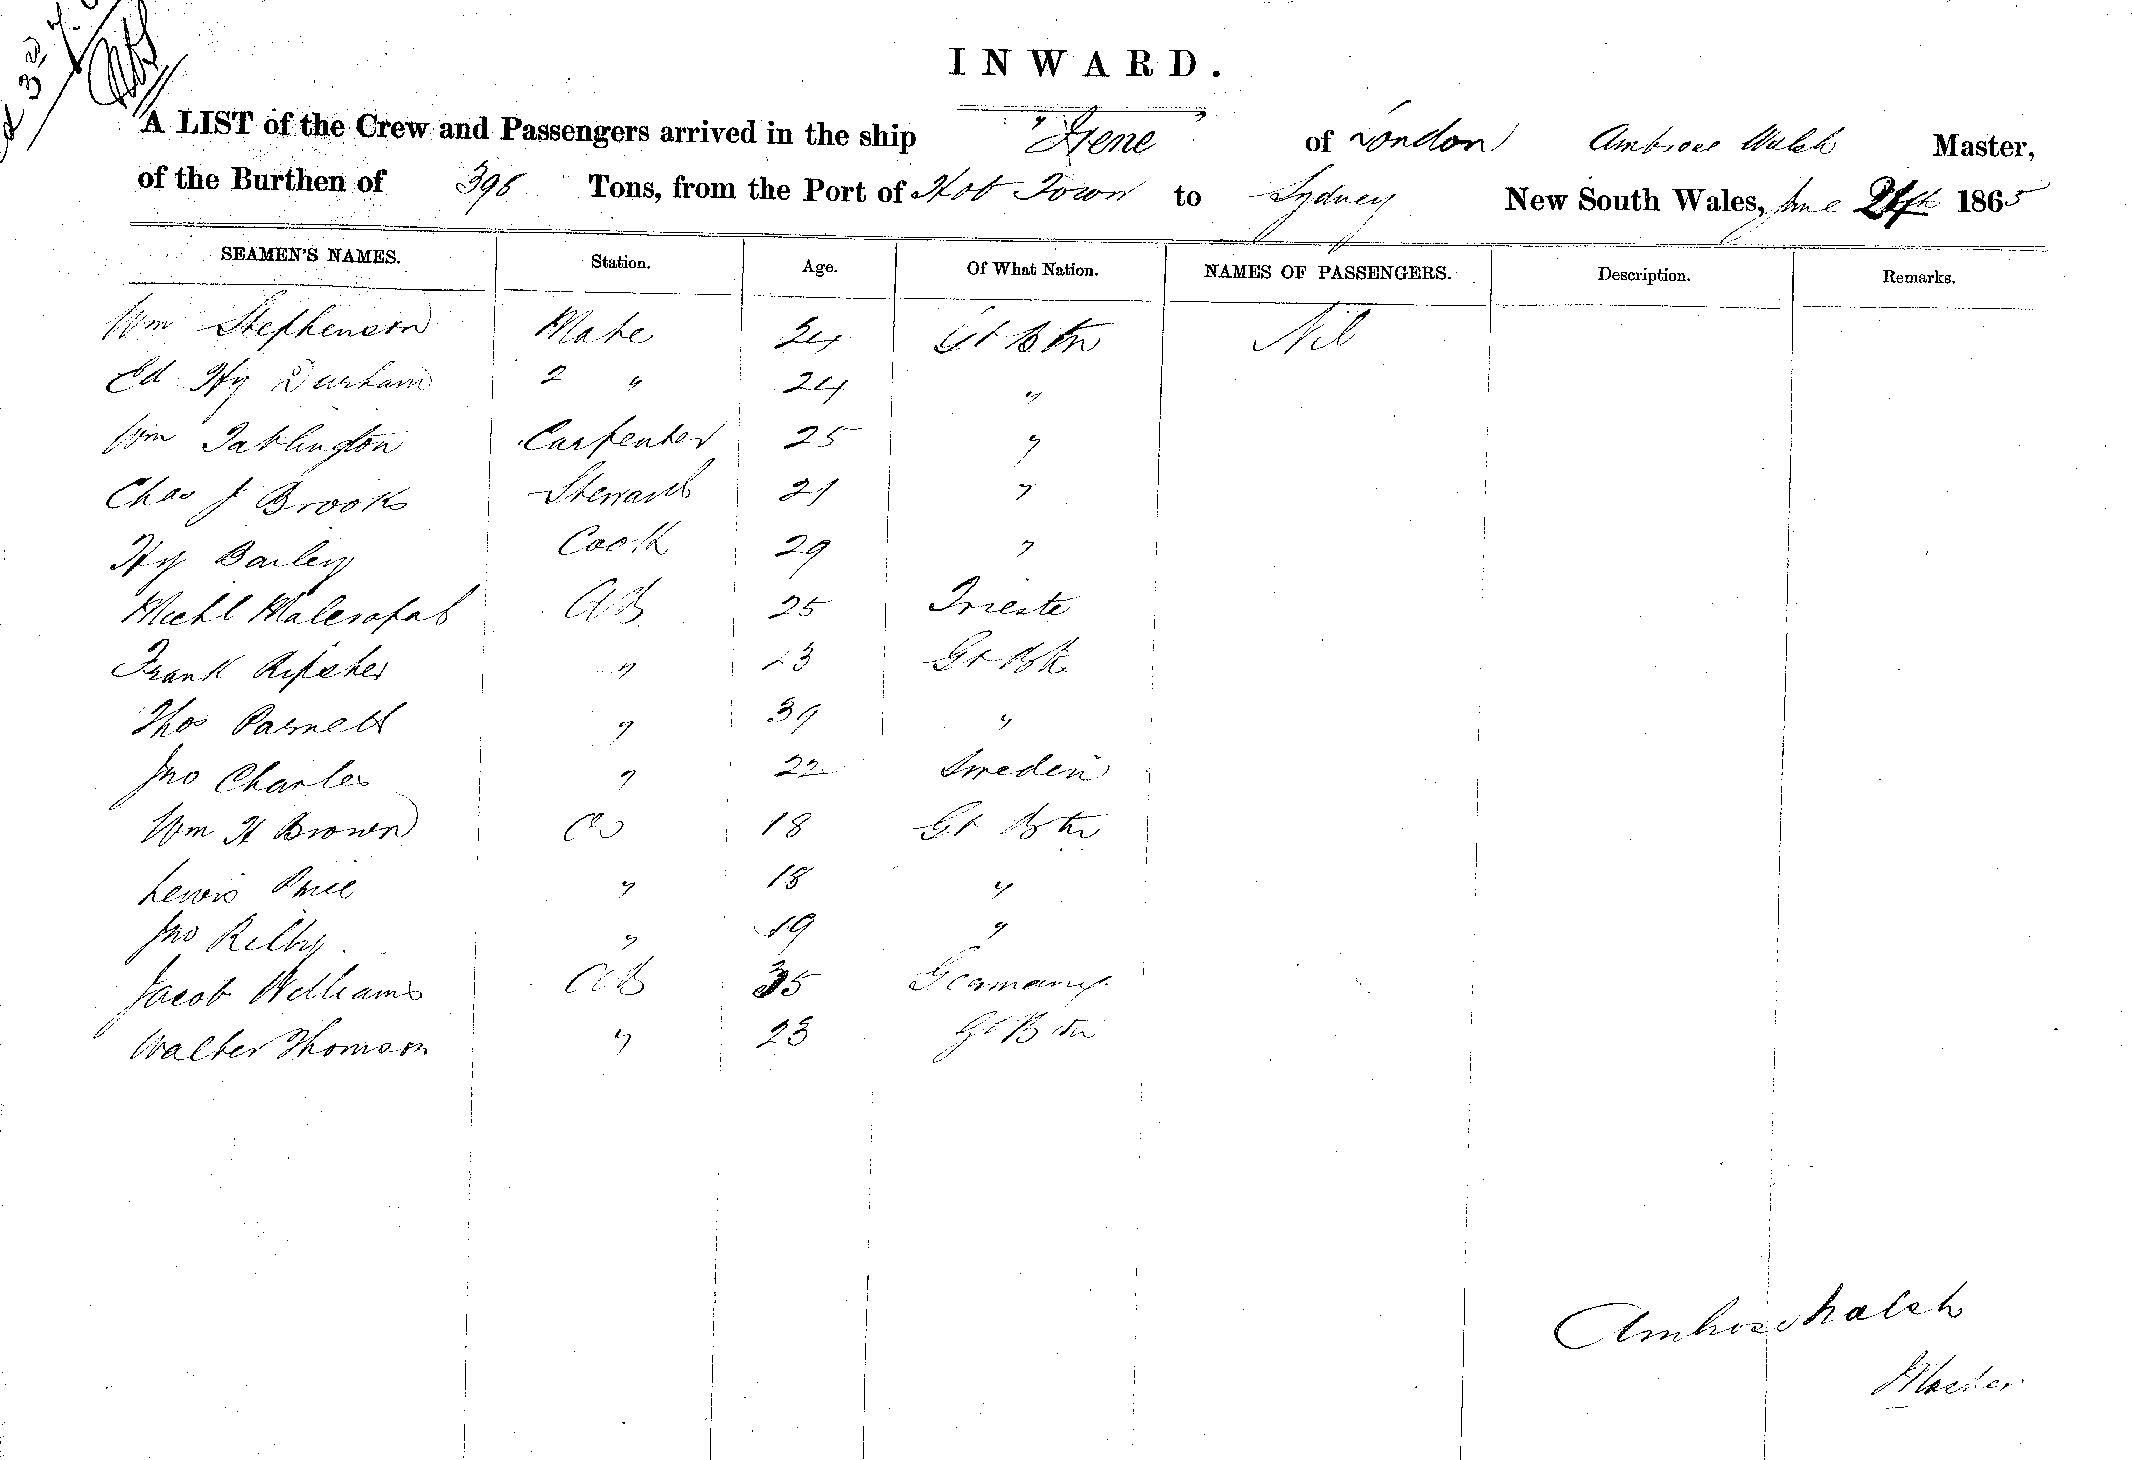 3rd
INWARD.
A LIST of the Crew and Passengers arrived in the ship "Irene" of London Ambrose Walsh Master,
of the Burthen of 396 Tons, from the Port of Hob Town to Sydney New South Wales, June 1865
SEAMEN'S NAMES. Station. Age. Of What Nation. NAMES OF PASSENGERS. Description. Remarks.
Wm Stephenson Mate 24 Gt Btn Nil
Ed Hy Durham 2 " 24 "
Wm Tatlington Carpenter 25 "
Chas J Brooks Steward 21 "
Hy Bailey Cook 29 "
Michl AB 25 Trieste
Frank Ripsher " 23 Gt Btn
Thos Parnell " 39 "
Jno Charles " 22 Sweden
Wm H Brown OS 18 Gt Btn
Lewis Price " 18 "
Jno Kilby " 19 "
Jacob Williams AB 35 Germany
Walter Thomson " 23 Gt Btn
Ambrose Walsh
Master